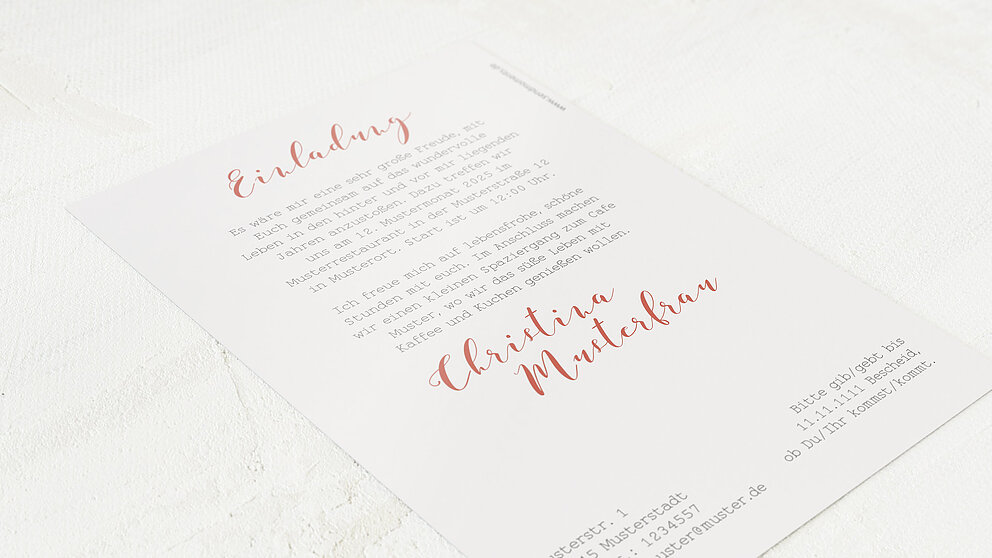 www.sendmoments.de
Einladung
Es wäre mir eine sehr große Freude, mit
Euch gemeinsam auf das wundervolle
Leben in den hinter und vor mir liegenden
Jahren anzustoßen. Dazu treffen wir
uns am 12. Mustermonat 2025 im
Musterrestaurant in der Musterstraße 12
in Musterort. Start ist um 12:00 Uhr.
Ich freue mich auf lebensfrohe, schöne
Stunden mit euch. Im Anschluss machen
wir einen kleinen Spaziergang zum Cafe
Muster, wo wir das süße Leben mit
Kaffee und Kuchen genießen wollen.
Christina
Musterfrau
Bitte gib/gebt bis
11.11.1111 Bescheid,
ob Du/Ihr kommst/kommt.
usterstr. 1
45 Musterstadt
.: 1234557
uster@muster.de